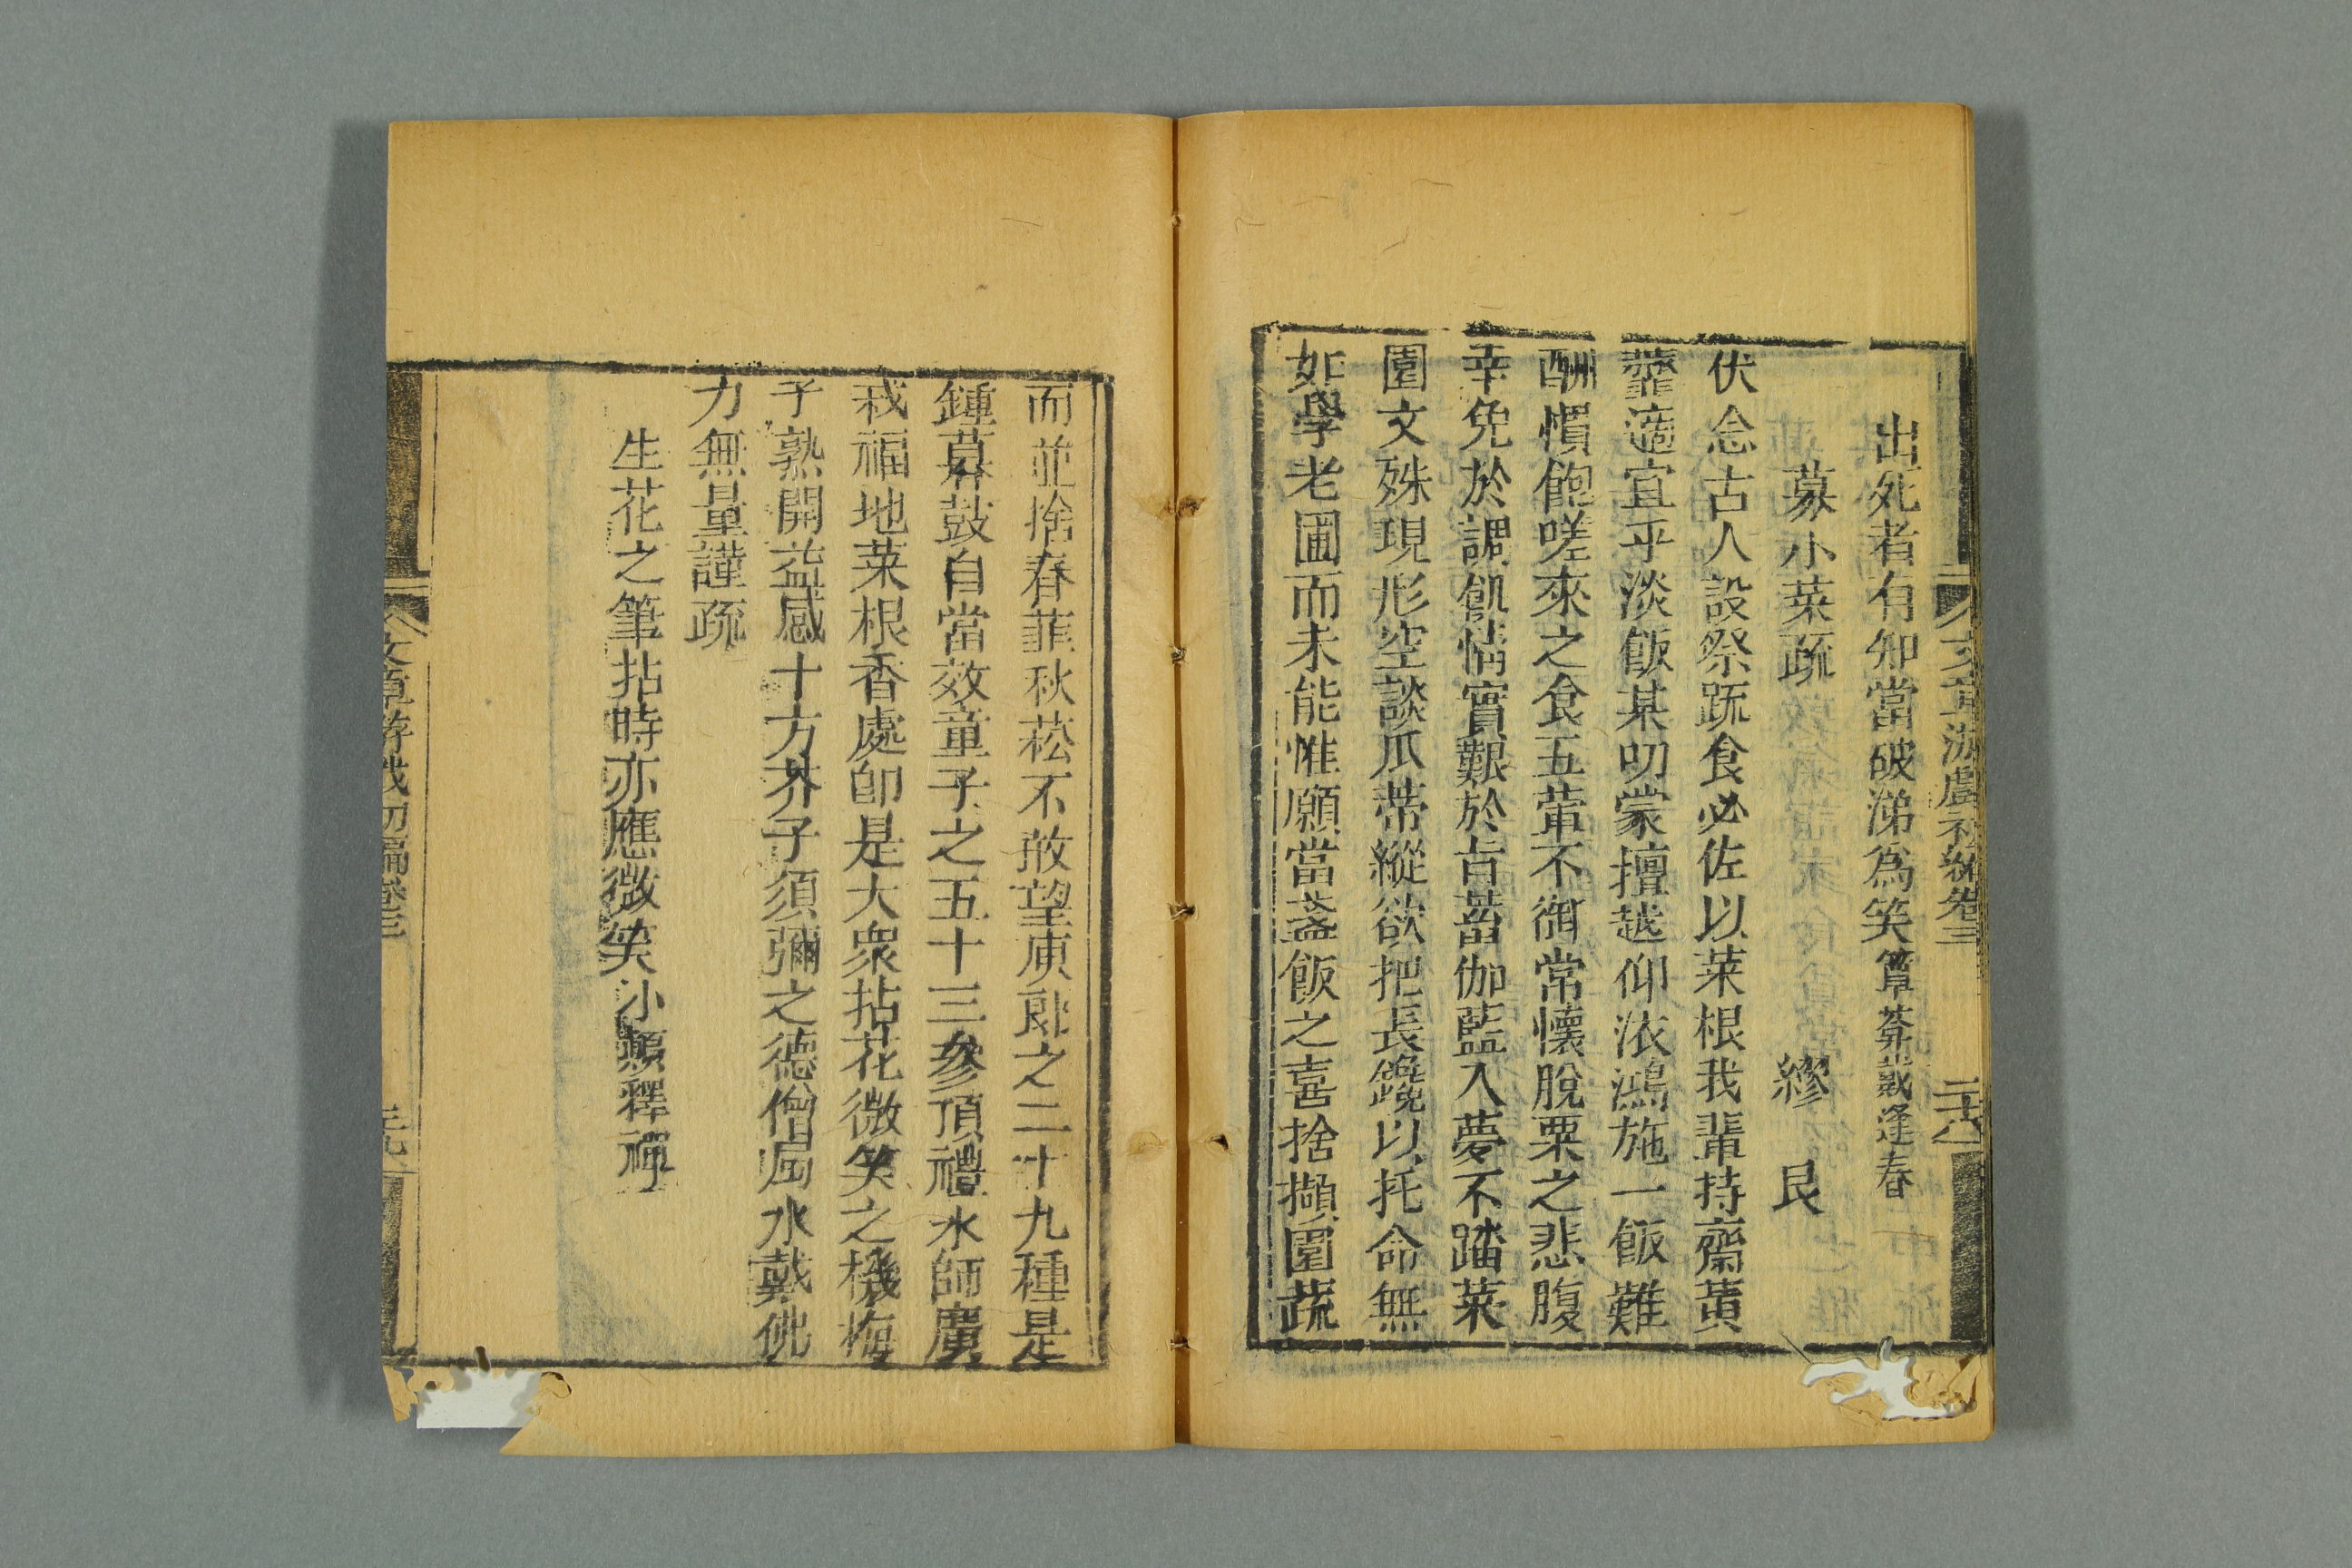 出死者有知當破涕爲笑 篁莽戴逢春
募小菜疏 繆艮
伏念古人設祭疏食必佐以菜根我輩持齋黃
虀適宜乎淡飯某叨蒙擅越仰依鴻施一飯難
酬慣飽嗟來之食五葷不御常懷脫粟之悲腹
幸免於調飢情實艱於旨蓄伽藍入夢不踏菜
園文殊現形空談瓜蒂縱欲把長鑱以托命無
如學老圃而未能惟願當盞飯之喜捨擷園蔬
而並捨春韮秋菘不敢望庾郎之二十九種是
鍾暮鼓自當效童子之五十三參頂禮水師廣
栽福地菜根香處卽是大衆拈花微笑之機梅
子熟開益感十方芥子須彌之德僧局水戴佛
力無量謹疏
生花之筆拈時亦應微笑 小顛釋禪
文章游戲初編卷三